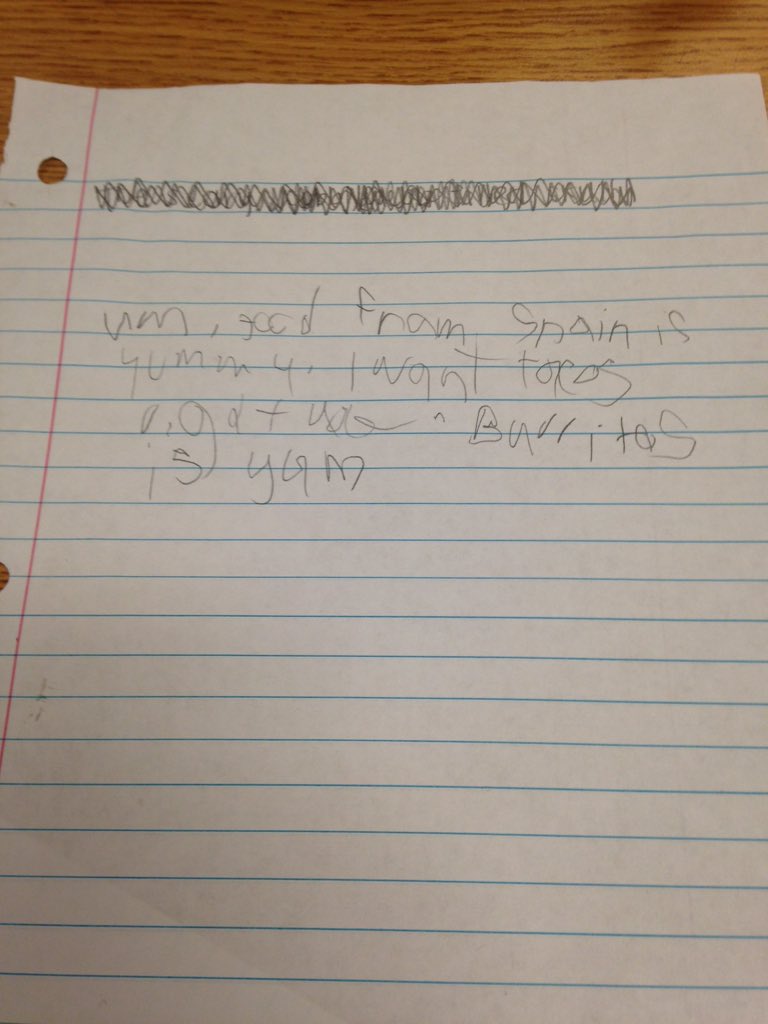 um, good fram Spain is
yummy. I want tacos
Burritos
is yum